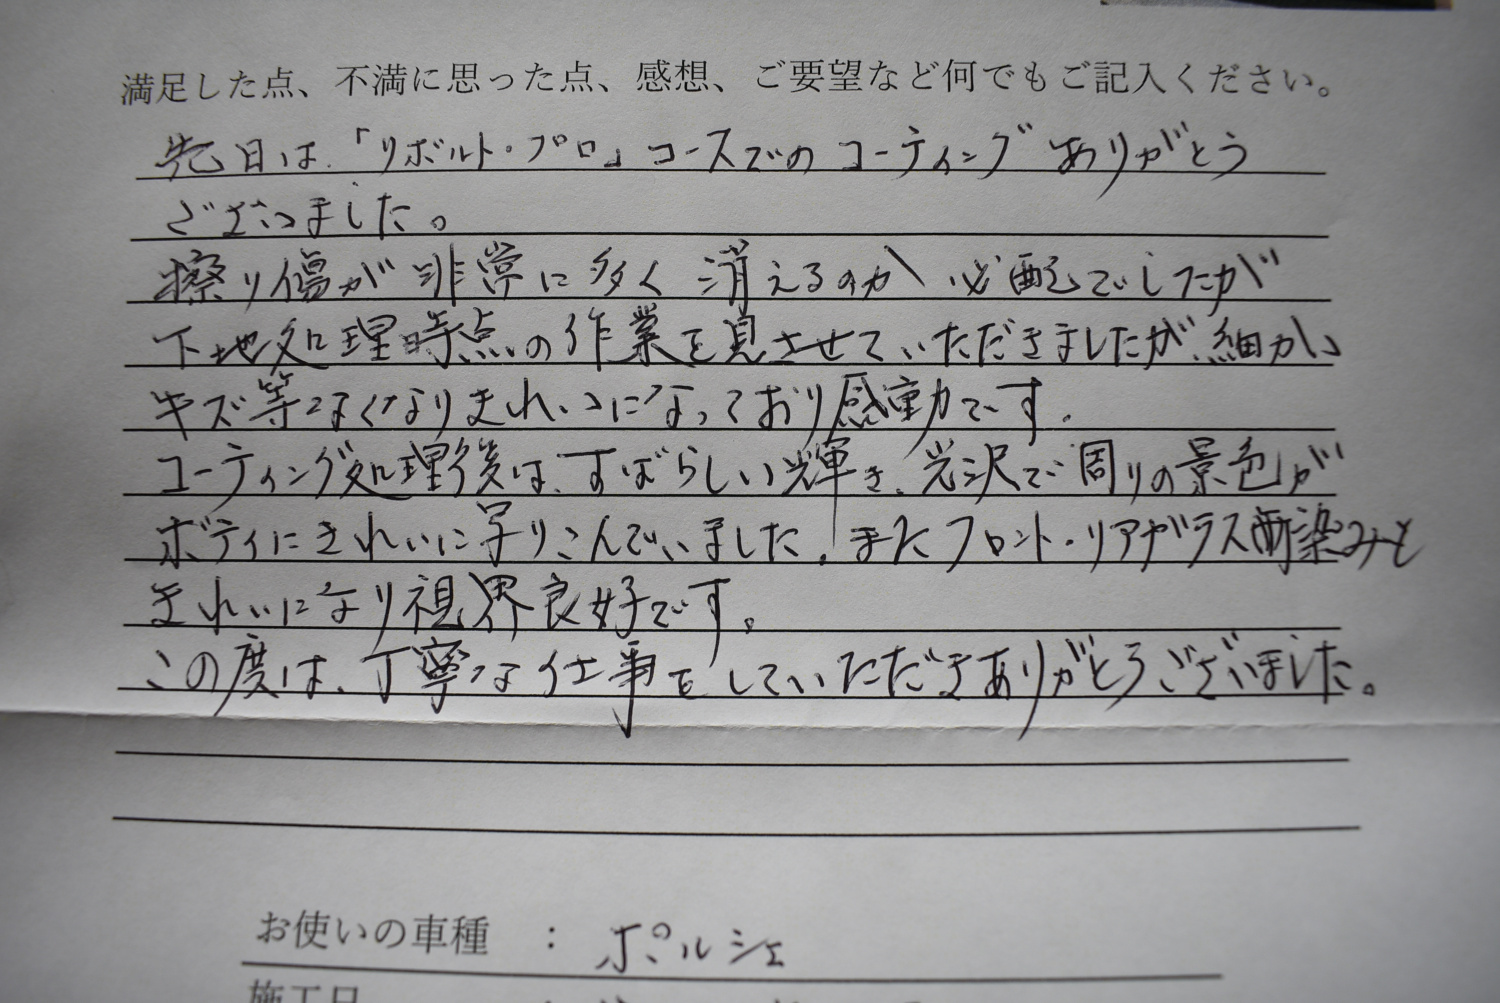 満足した点、不満に思った点、感想、ご要望など何でもご記入ください。
先日は、「リボルト・プロ」コースでのコーティングありがとう
ございました。
擦り傷が非常に多く消えるのか心配でしたが
下地処理時点の作業を見させていただきましたが、細かい
キズ等なくなりきれいになっており感動です。
コーティング処理後は、すばらしい輝き、光沢で周りの景色が
ボディにきれいに写りこんでいました。またフロント・リアガラス両染みも
きれいになり視界良好です。
この度は、丁寧な仕事をしていただきありがとうございました。
お使いの車種 : ポルシェ
施工日